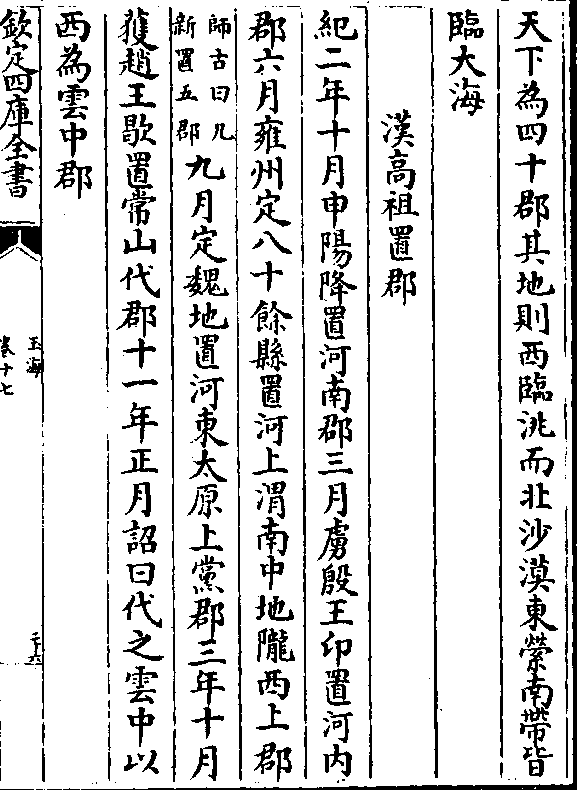 天下為四十郡其地則西臨洮而北沙漠東縈南帶皆
臨大海
漢高祖置郡
紀二年十月申陽降置河南郡三月虜殷王卬置河内
郡六月雍州定八十餘縣置河上渭南中地隴西上郡
師古曰凡
新置五郡
九月定魏地置河東太原上黨郡三年十月
獲趙王歇置常山代郡十一年正月詔曰代之雲中以
西為雲中郡
欽定四庫全書
玉海
卷十七
二十六